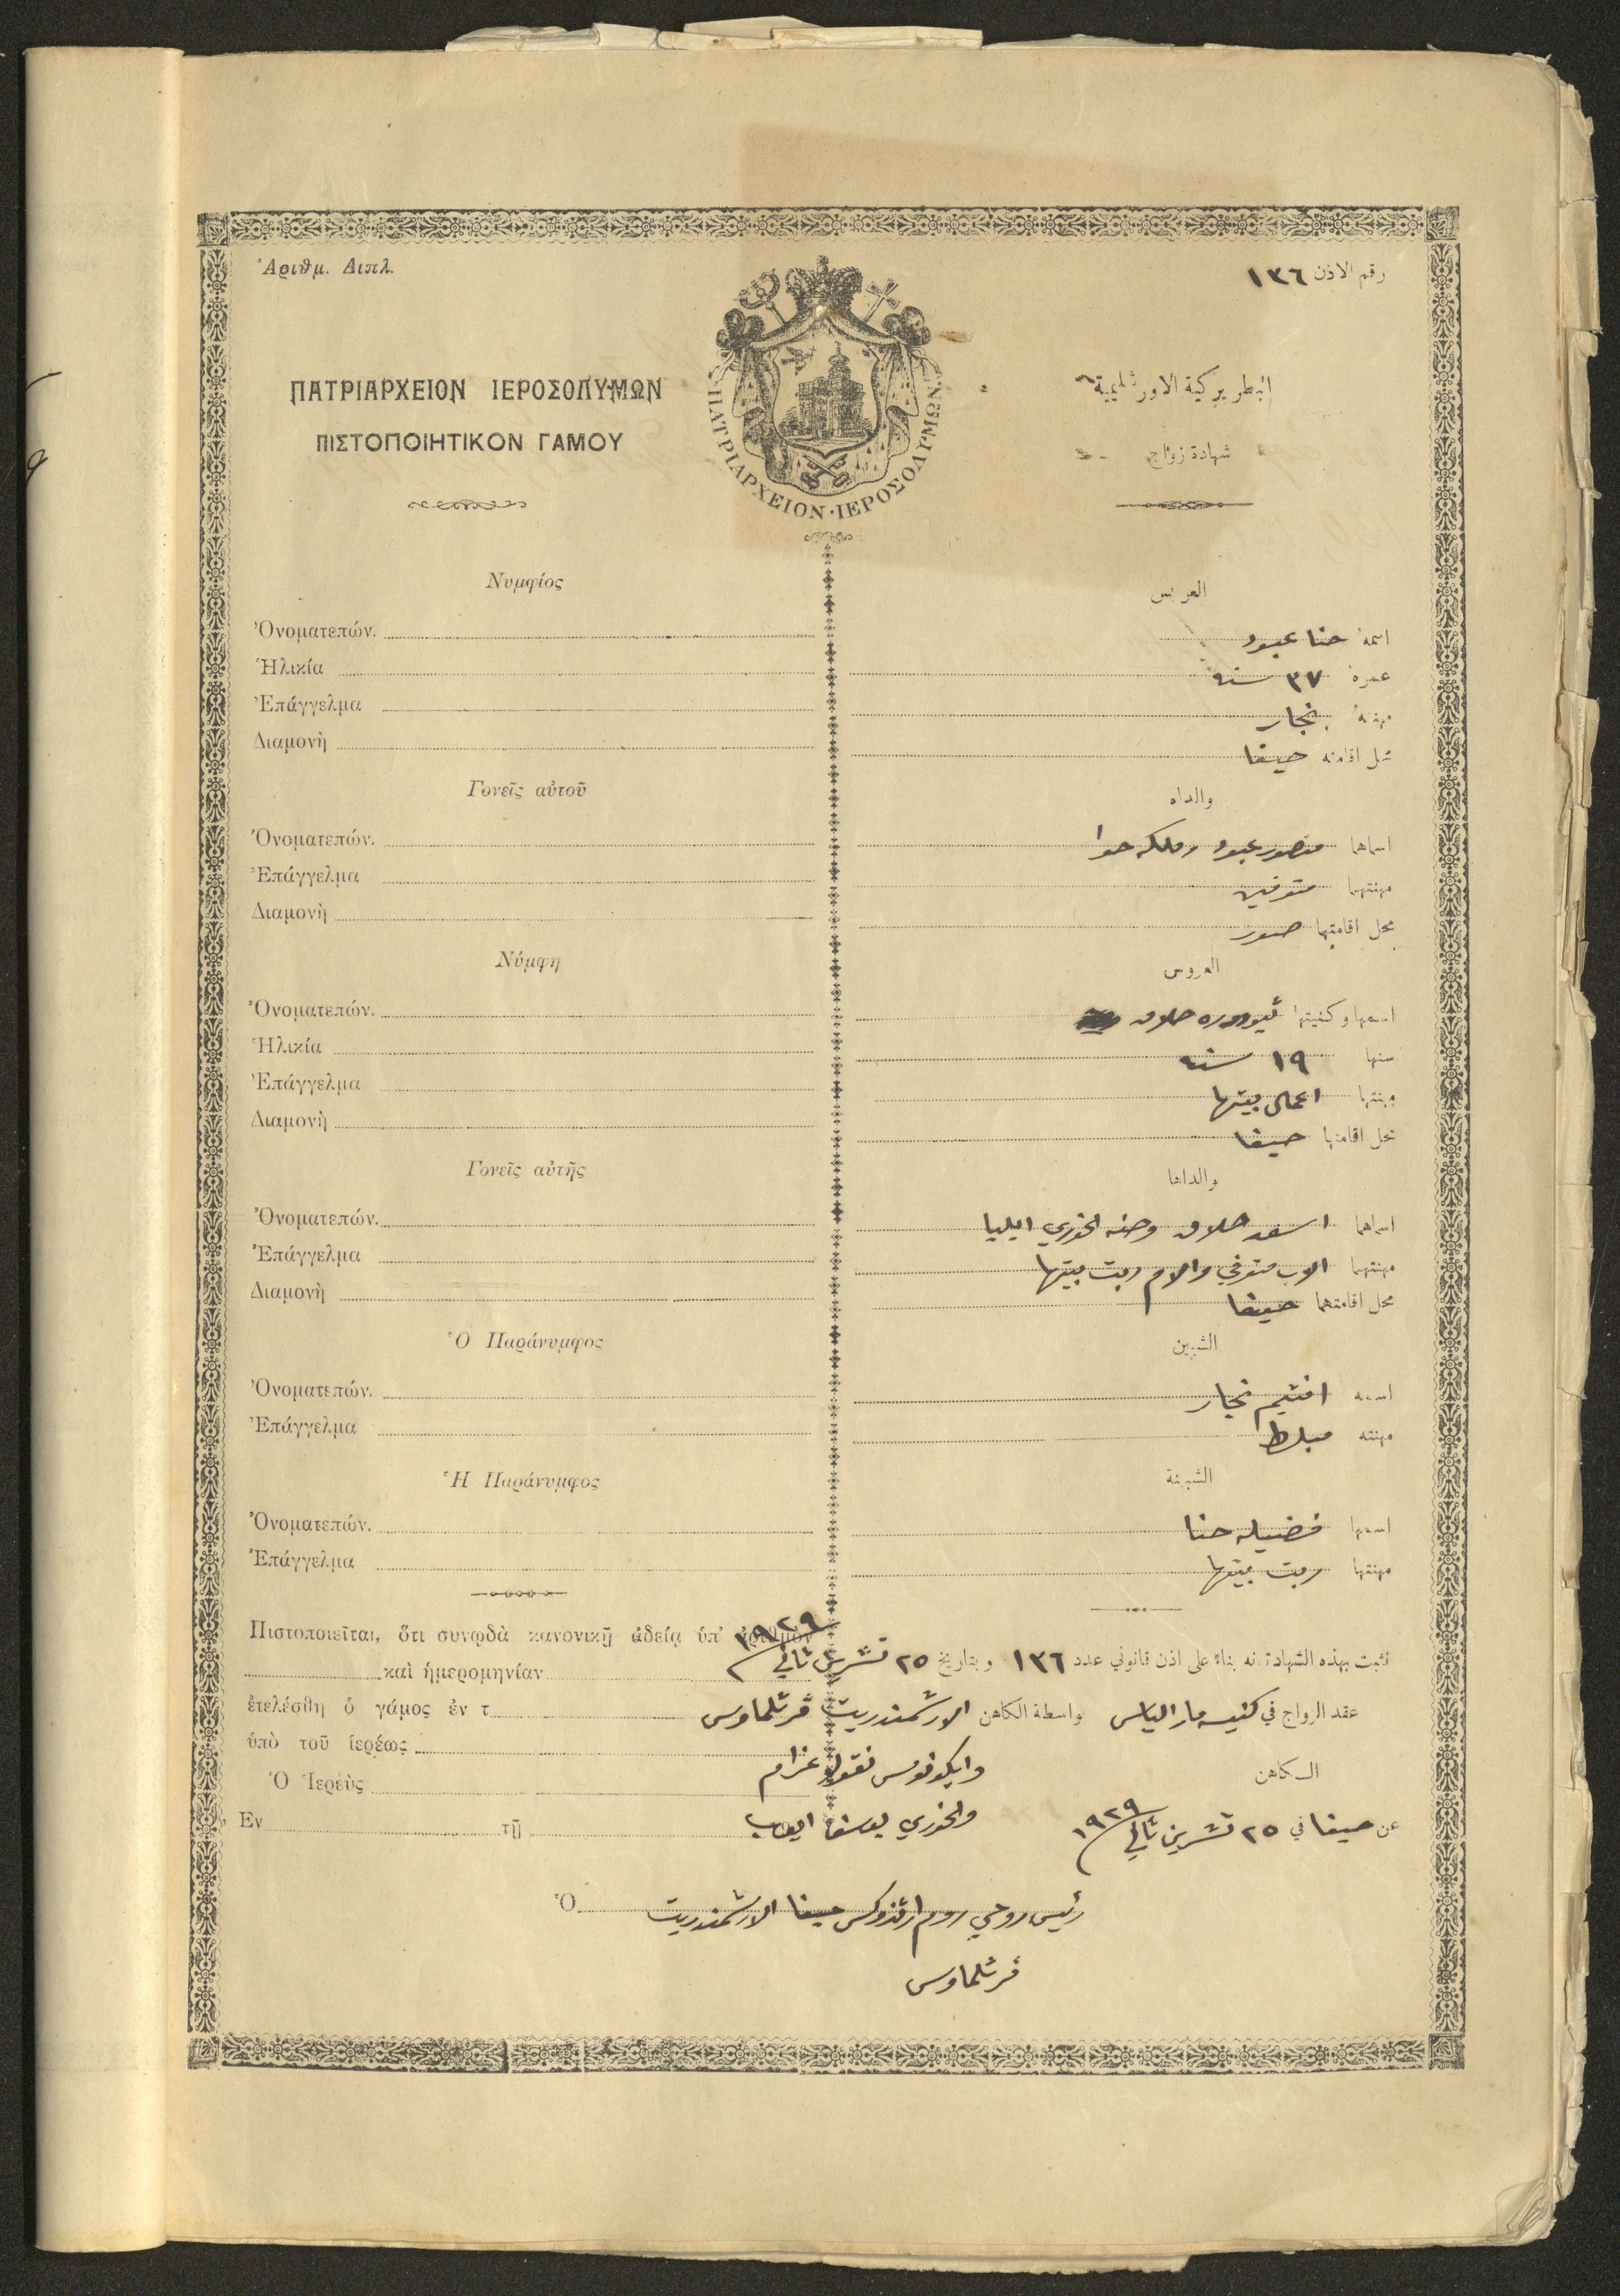 Ἀριθμ. Διπλ.
رقم الاذن ١٣٦
ΠΑΤΡΙΑΡΧΕΙΟΝ ΙΕΡΟΣΟΛΥΜΩΝ
البطريركية الاورشليمية
ΠΙΣΤΟΠΟΙΗΤΙΚΟΝ ΓΑΜΟΥ
شهادة زواج
ΠΑΤΡΙΑΡΧΕΙΟΝ·ΙΕΡΟΣΟΛΥΜΩΝ
Νυμφίος
العريس
Ὀνοματεπών.
اسمهُ حنا عبود
Ἡλικία
عمرهُ ٣٧ سنه
Ἐπάγγελμα
مهنتهُ نجار
Διαμονὴ
محل اقامته حيفا
Γονεῖς αὐτοῦ
والداه
Ὀνοματεπών.
اسماهما منصور عبود وملكه حوا
Ἐπάγγελμα
مهنتهما متوفين
Διαμονὴ
محل اقامتهما صور
Νύμφη
العروس
Ὀνοματεπών.
اسمها وكنيتها ثيودوره حلاق
Ἡλικία
سنها ١٩ سنه
Ἐπάγγελμα
مهنتها اعمال بيتها
Διαμονὴ
محل اقامتها حيفا
Γονεῖς αὐτῆς
والداها
Ὀνοματεπών.
اسماهما اسعد حلاق وحنه الخوري ايليا
Ἐπάγγελμα
مهنتهما الاب متوفي والام ربت بيتها
Διαμονὴ
محل اقامتهما حيفا
Ὁ Παράνυμφος
الشبين
Ὀνοματεπών.
اسمه افتيم نجار
Ἐπάγγελμα
مهنته مبلط
Ἡ Παράνυμφος
الشبينة
Ὀνοματεπών.
اسمها فضيله حنا
Ἐπάγγελμα
مهنتها ربت بيتها
Πιστοποιεῖται, ὅτι συνῳδὰ κανονικῇ ἀδείᾳ ὑπ' ἀριθμὸν
نثبت بهذه الشهادة انه بناءً على اذن قانوني عدد ١٣٦ وبتاريخ ٢٥ تشرين ثاني ١٩٢٩
καὶ ἡμερομηνίαν
ἐτελέσθη ὁ γάμος ἐν τ
عقد الزواج في كنيسه مار الياس بواسطة الكاهن الارشمندريت ڤرثلماوس
ὑπὸ τοῦ ἱερέως
وايكونوس نقولا عزام
Ὁ Ἱερεὺς
الكاهن
والخوري يوسف ايوب
Ἐν τῇ
عن حيفا في ٢٥ تشرين ثاني ١٩٢٩
Ὁ
رئيس روحي روم ارثذوكس حيفا الارشمندريت
ڤرثلماوس